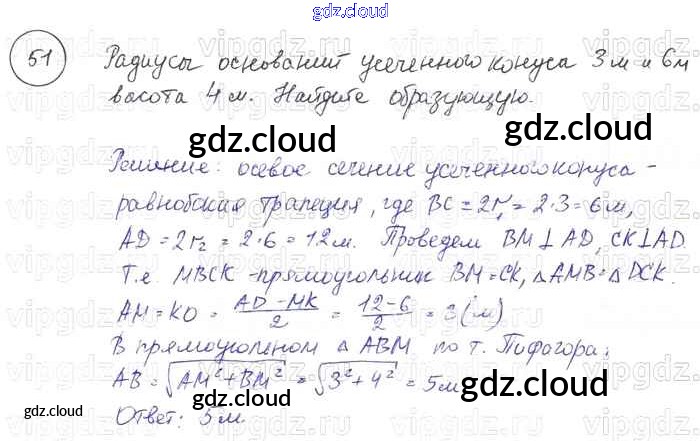 gdz.cloud
51 Радиусы оснований усеченного конуса 3 м и 6 м
васота 4 м. Найдите образующую.
gdz.cloud gdz.cloud
Решение: осевое сечение усеченного конуса -
равнобокая трапеция, где BC = 2r₁ = 2·3 = 6 м,
AD = 2r₂ = 2·6 = 12 м. Проведем BM ⊥ AD, CK ⊥ AD.
Т.е. MBCK - прямоугольник BM = CK, △AMB = △DCK.
AM = KO = (AD - MK)/2 = (12 - 6)/2 = 3 (м)
В прямоугольном △ ABM по т. Пифагора:
AB = √(AM² + BM²) = √(3² + 4²) = 5 м
gdz.cloud gdz.cloud
gdz.cloud gdz.cloud
Ответ: 5 м